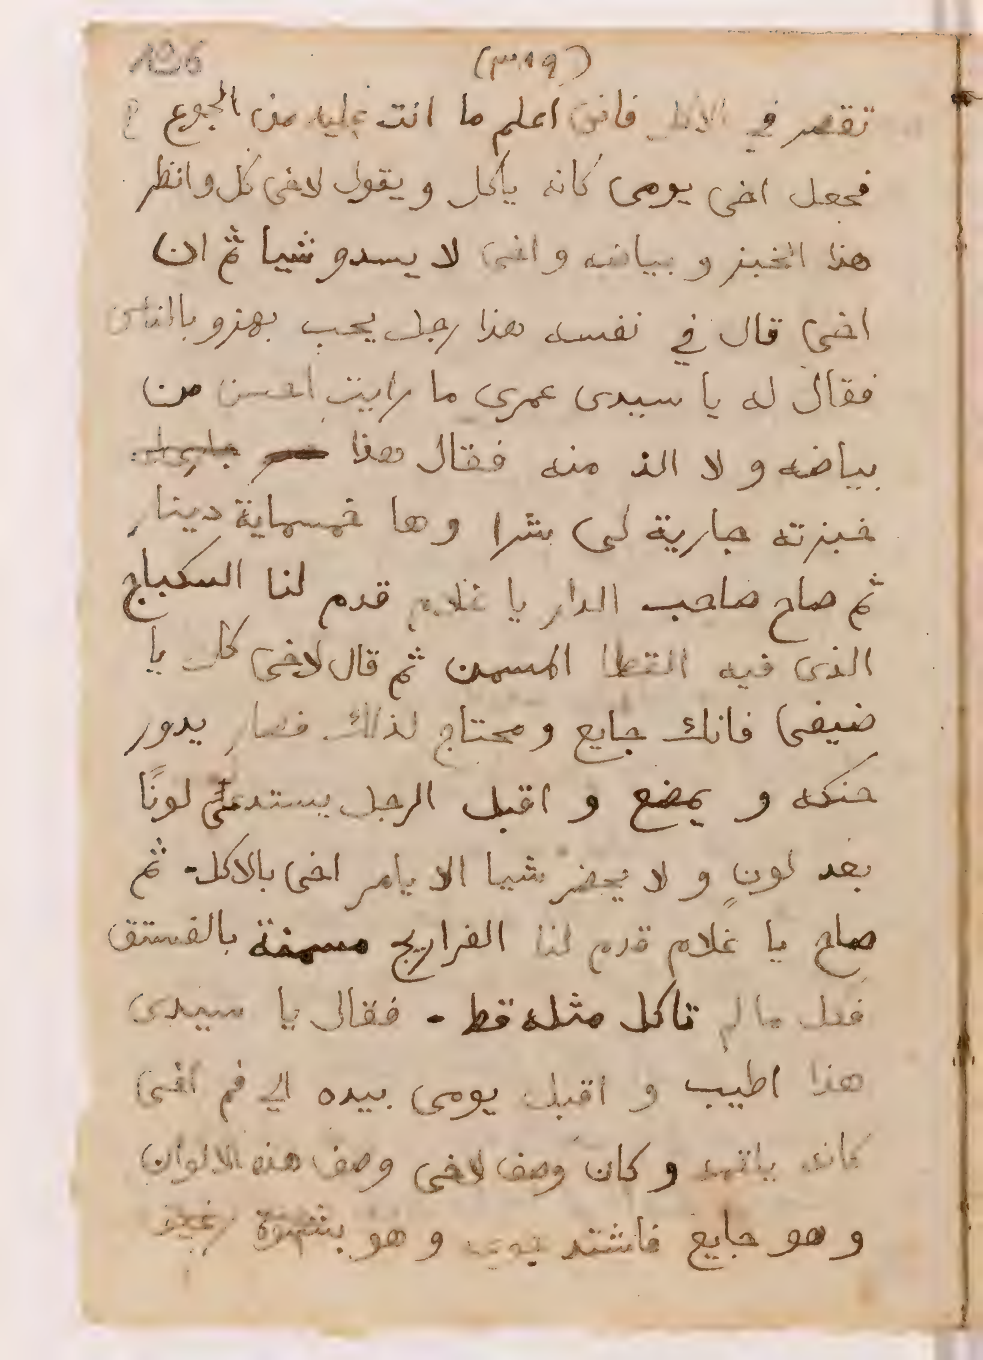 126
(٣١٩)
تقصر في الاكل فانى اعلم ما انت عليه من الجوع
فجعل اخى يومى كانه ياكل و يقول لاخى كل و انظر
هذا الخبز و بياضه و اخى لا يسدو شيا ثم ان
اخى قال في نفسه هذا رجل يحب يهزو بالناس
فقال له يا سيدى عمرى ما رايت احسن من
بياضه و لا الذ منه فقال هذا
خبزته جارية لى بشرا وها خمسماية دينار
ثم صاح صاحب الدار يا غلام قدم لنا السكباج
الذى فيه القطا المسمن ثم قال لاخى كل يا
ضيفى فانك جايع و محتاج لذلك فصار يدور
حنكه و يمضع و اقبل الرجل يستدعى لونًا
بعد لونٍ و لا يحضر شيا الا يامر اخى بالاكل - ثم
صاح يا غلام قدم لنا الفراريج مسمنة بالفستق
فكل ما لم تاكل مثله قط - فقال يا سيدى
هذا اطيب و اقبل يومى بيده الى فم اخى
كانه يلقمه و كان وصف لاخى وصف هذه الالوان
و هو جايع فاشتد جوعه و هو بشهوة رغيف